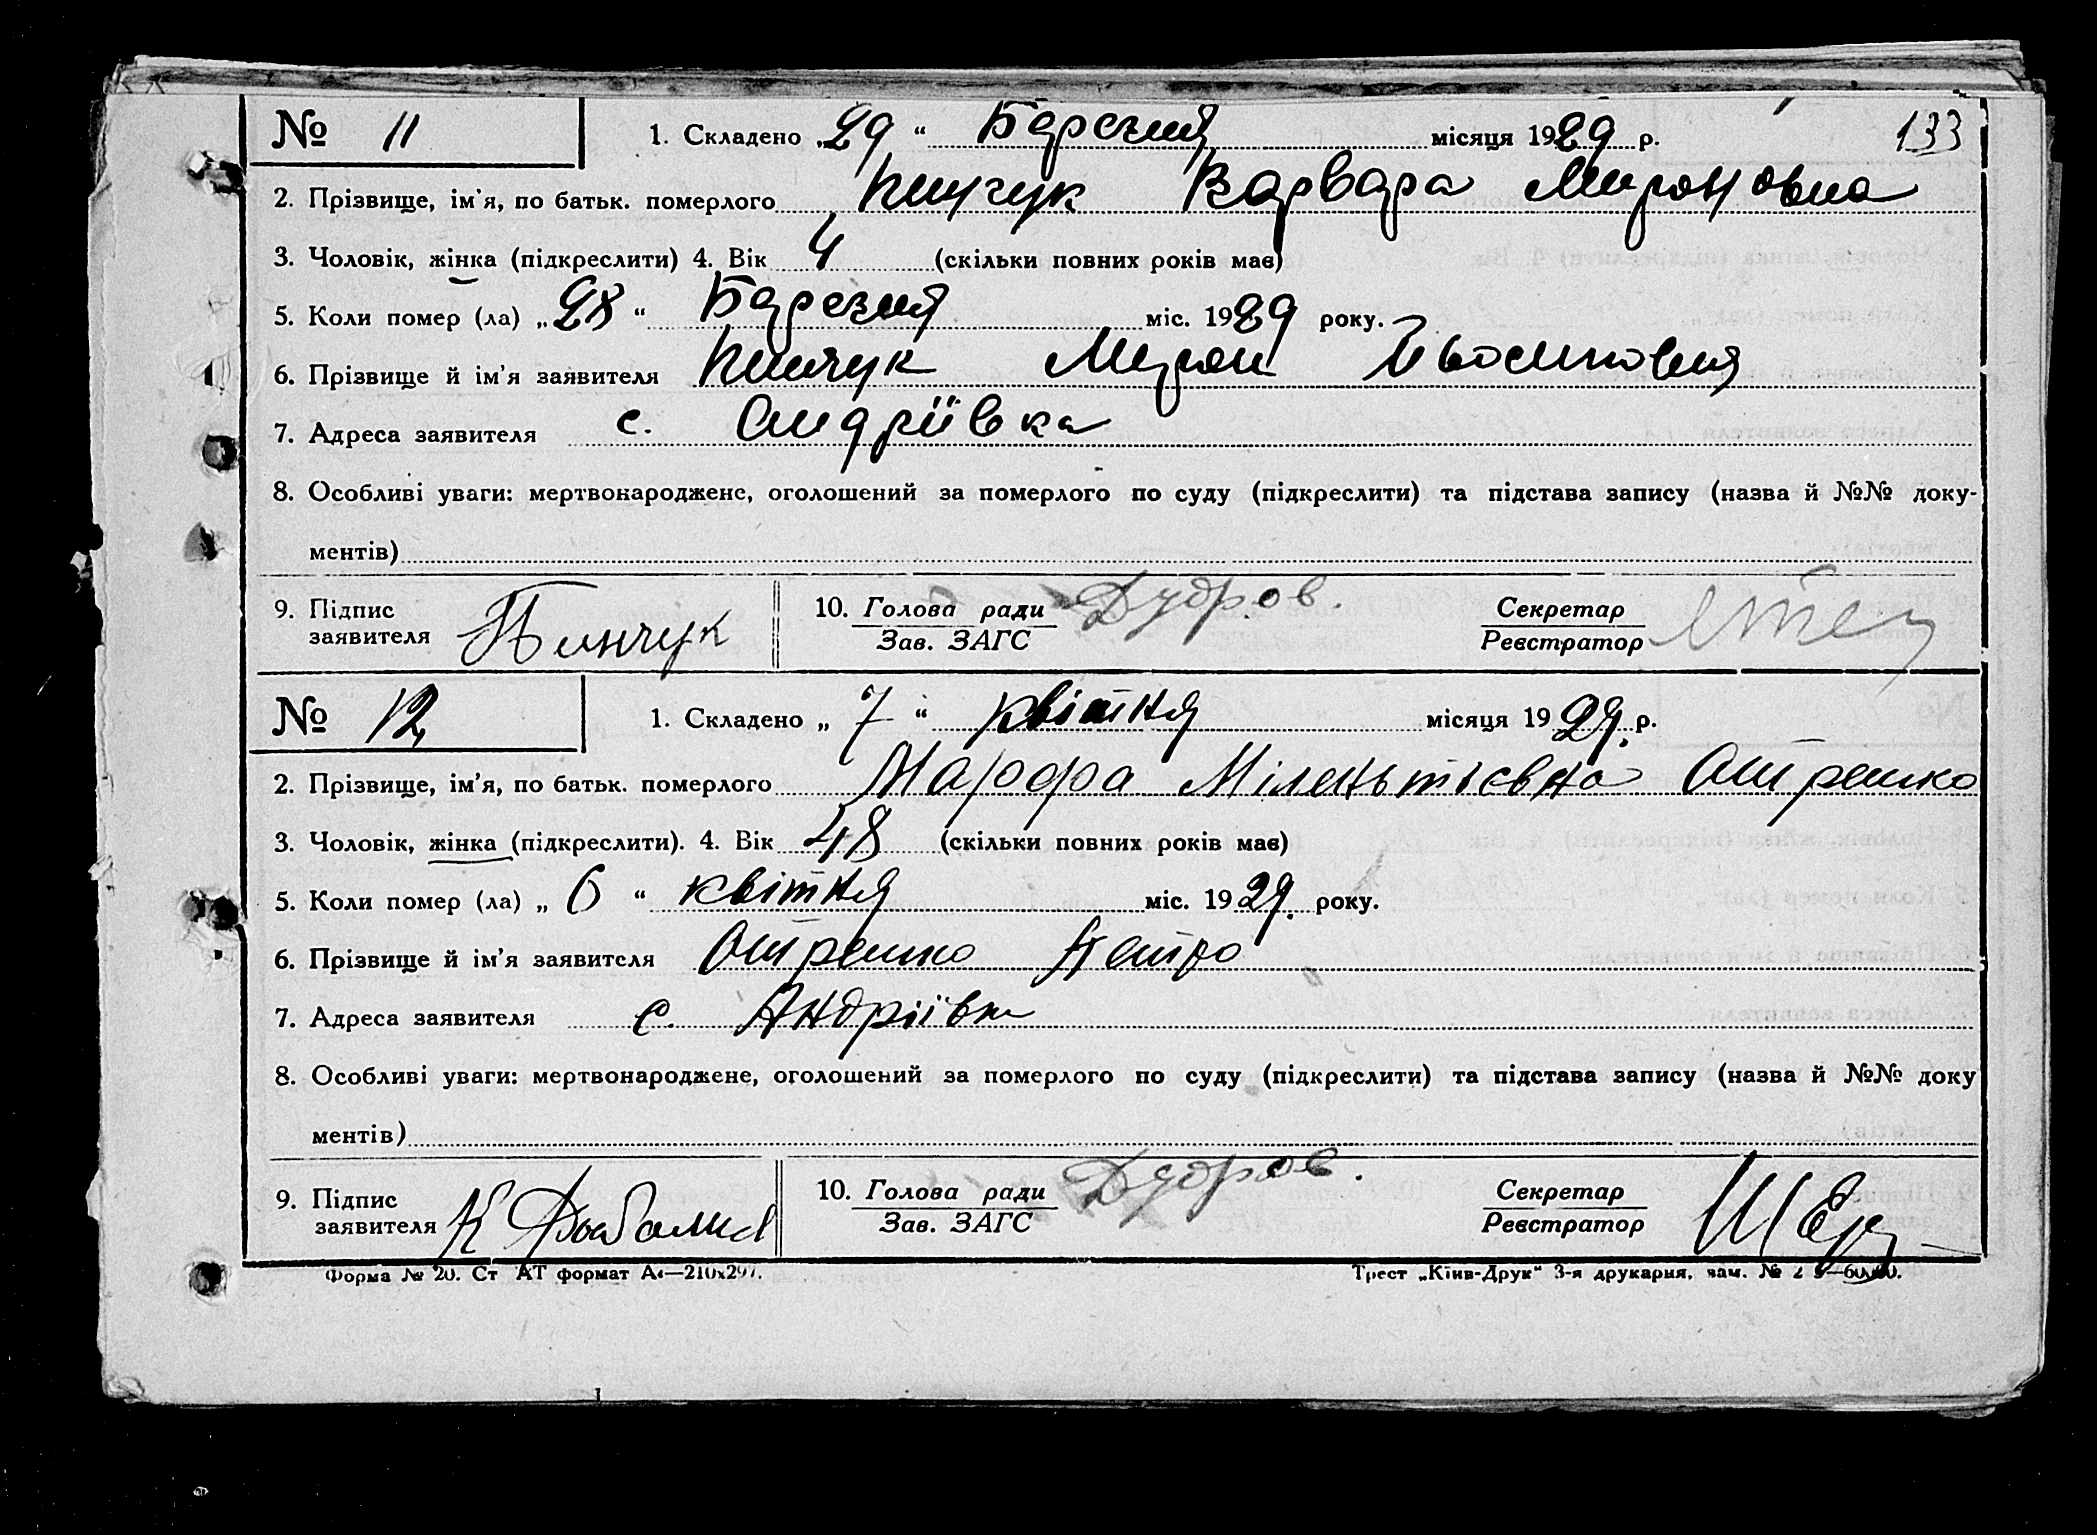 № 11 1. Складено „29“ Березня місяця 1929 р. 133
2. Прізвище, ім'я, по батьк. померлого Пинчук Варвара Мироновна
3. Чоловік, жінка (підкреслити) 4. Вік 4 (скільки повних років має)
5. Коли помер (ла) „28“ Березня міс. 1929 року.
6. Прізвище й ім'я заявителя Пинчук Мирон
7. Адреса заявителя с. Андріївка
8. Особливі уваги: мертвонароджене, оголошений за померлого по суду (підкреслити) та підстава запису (назва й №№ доку-
ментів)
9. Підпис заявителя Пинчук 10. Голова ради Дудров. Секретар
Зав. ЗАГС Реєстратор
№ 12 1. Складено „7“ квітня місяця 1929. р.
2. Прізвище, ім'я, по батьк. померлого Марфа Міленьтієвна Отрешко
3. Чоловік, жінка (підкреслити). 4. Вік 48 (скільки повних років має)
5. Коли помер (ла) „6“ квітня міс. 1929. року.
6. Прізвище й ім'я заявителя Отрешко Петро
7. Адреса заявителя с. Андріївка
8. Особливі уваги: мертвонароджене, оголошений за померлого по суду (підкреслити) та підстава запису (назва й №№ доку
ментів)
9. Підпис заявителя 10. Голова ради Дудров. Секретар
Зав. ЗАГС Реєстратор
Форма № 20. Ст АТ формат А4—210х297. Трест „Київ-Друк“ 3-я друкарня, зам. №